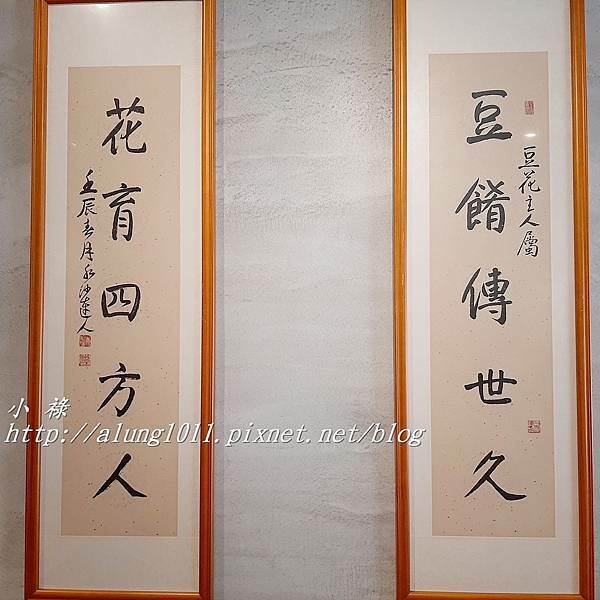 豆餚傳世久
豆花主人屬
花育四方人
壬辰春月水沙連人
小祿
http://alung1011.pixnet.net/blog